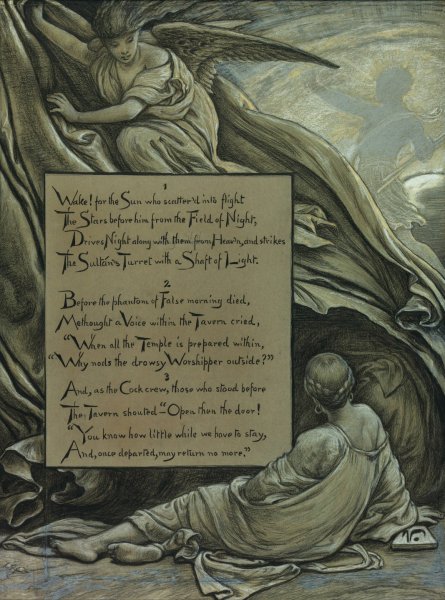 1
Wake! for the Sun who scatter'd into flight
The Stars before him from the Field of Night,
Drives Night along with them from Heav'n, and strikes
The Sultán's Turret with a Shaft of Light.
2
Before the phantom of False morning died,
Methought a Voice within the Tavern cried,
"When all the Temple is prepared within,
"Why nods the drowsy Worshipper outside?"
3
And, as the Cock crew, those who stood before
The Tavern shouted — "Open then the door!
"You know how little while we have to stay,
And, once departed, may return no more."